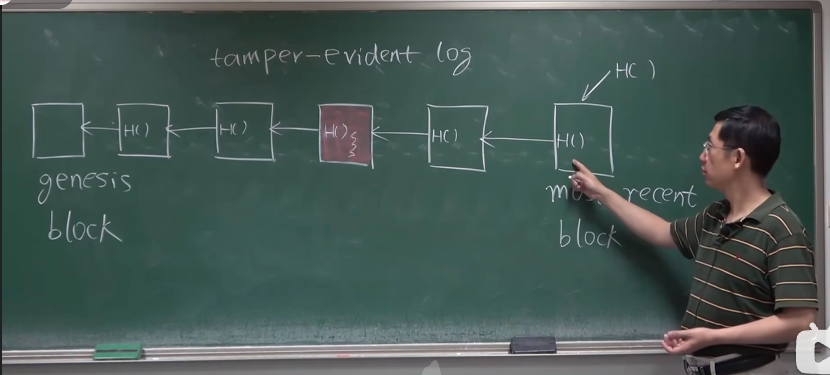 tamper-evident log
H( )
H( ) H( ) H( ) H( ) H( )
genesis
block
most recent
block